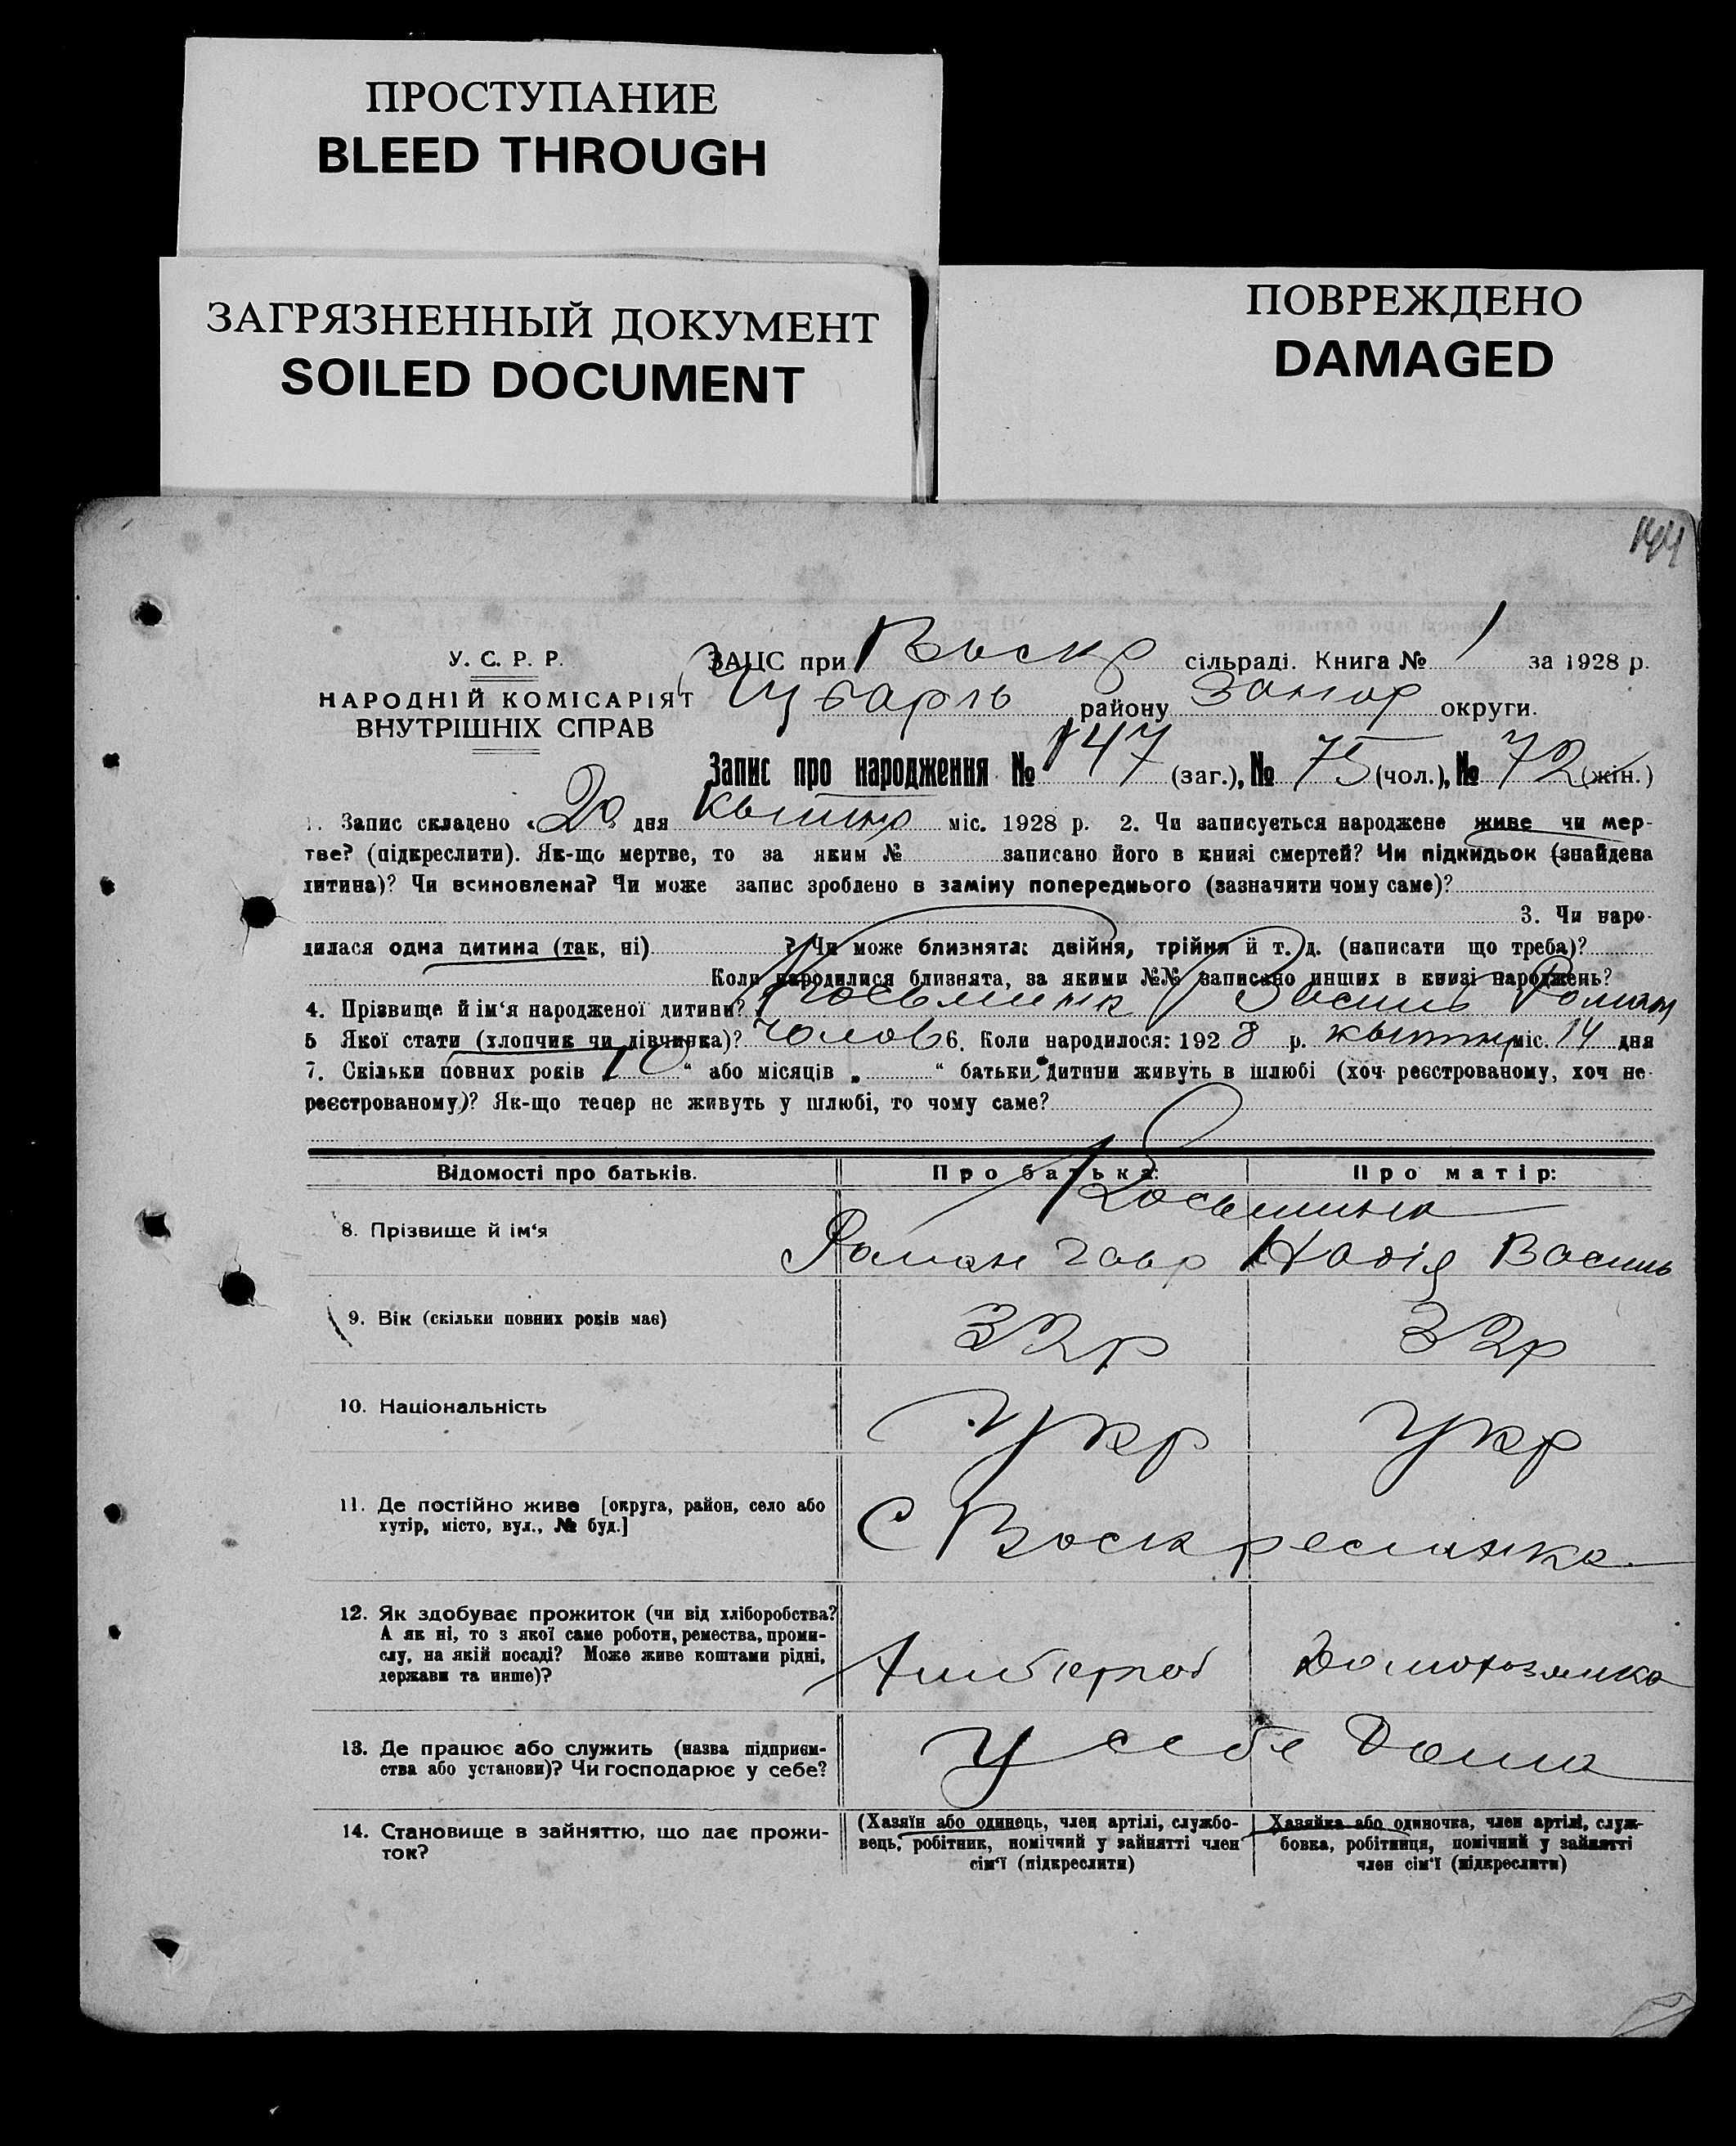 ПРОСТУПАНИЕ
BLEED THROUGH
ЗАГРЯЗНЕННЫЙ ДОКУМЕНТ
SOILED DOCUMENT
ПОВРЕЖДЕНО
DAMAGED
144
У. С. Р. Р.
НАРОДНІЙ КОМІСАРІЯТ
ВНУТРІШНІХ СПРАВ
ЗАЦС при Воскр сільраді. Книга № 1 за 1928 р.
району Запор округи.
Запис про народження № 147 (заг.), № 75 (чол.), № 72 (жін.)
1. Запис складено « 20 » дня квітня міс. 1928 р. 2. Чи записується народжене живе чи мер-
тве? (підкреслити). Як-що мертве, то за яким № записано його в книзі смертей? Чи підкидьок (знайдена
дитина)? Чи всиновлена? Чи може запис зроблено в заміну попереднього (зазначити чому саме)?
3. Чи наро-
дилася одна дитина (так, ні) ? Чи може близнята: двійня, трійня й т. д. (написати що треба)?
Коли народилися близнята, за якими №№ записано инших в книзі народжень?
4. Прізвище й ім'я народженої дитини? Косьминка Василь Роман
5 Якої стати (хлопчик чи дівчинка)? Чолов 6. Коли народилося: 1928 р. квітня міс. 14 дня
7. Скільки повних років 10 " або місяців „ " батьки дитини живуть в шлюбі (хоч реєстрованому, хоч не-
реєстрованому)? Як-що тепер не живуть у шлюбі, то чому саме?
Відомості про батьків. Про батька: Про матір:
Косьминка
8. Прізвище й ім'я Роман Гавр Надія Василь
9. Вік (скільки повних років має) 32р 32р
10. Національність Укр Укр
11. Де постійно живе [округа, район, село або
хутір, місто, вул., № буд.] С Воскресинка
12. Як здобуває прожиток (чи від хліборобства?
А як ні, то з якої саме роботи, ремества, проми-
слу, на якій посаді? Може живе коштами рідні,
держави та инше)? Домохозяика
13. Де працює або служить (назва підприєм-
ства або установи)? Чи господарює у себе? У себе Дома
14. Становище в зайняттю, що дає прожи-
ток?
(Хазяїн або одинець, член артілі, службо-
вець, робітник, помічний у зайнятті член
сім'ї (підкреслити)
Хазяйка або одиночка, член артілі, служ-
бовка, робітниця, помічний у зайнятті
член сім'ї (підкреслити)